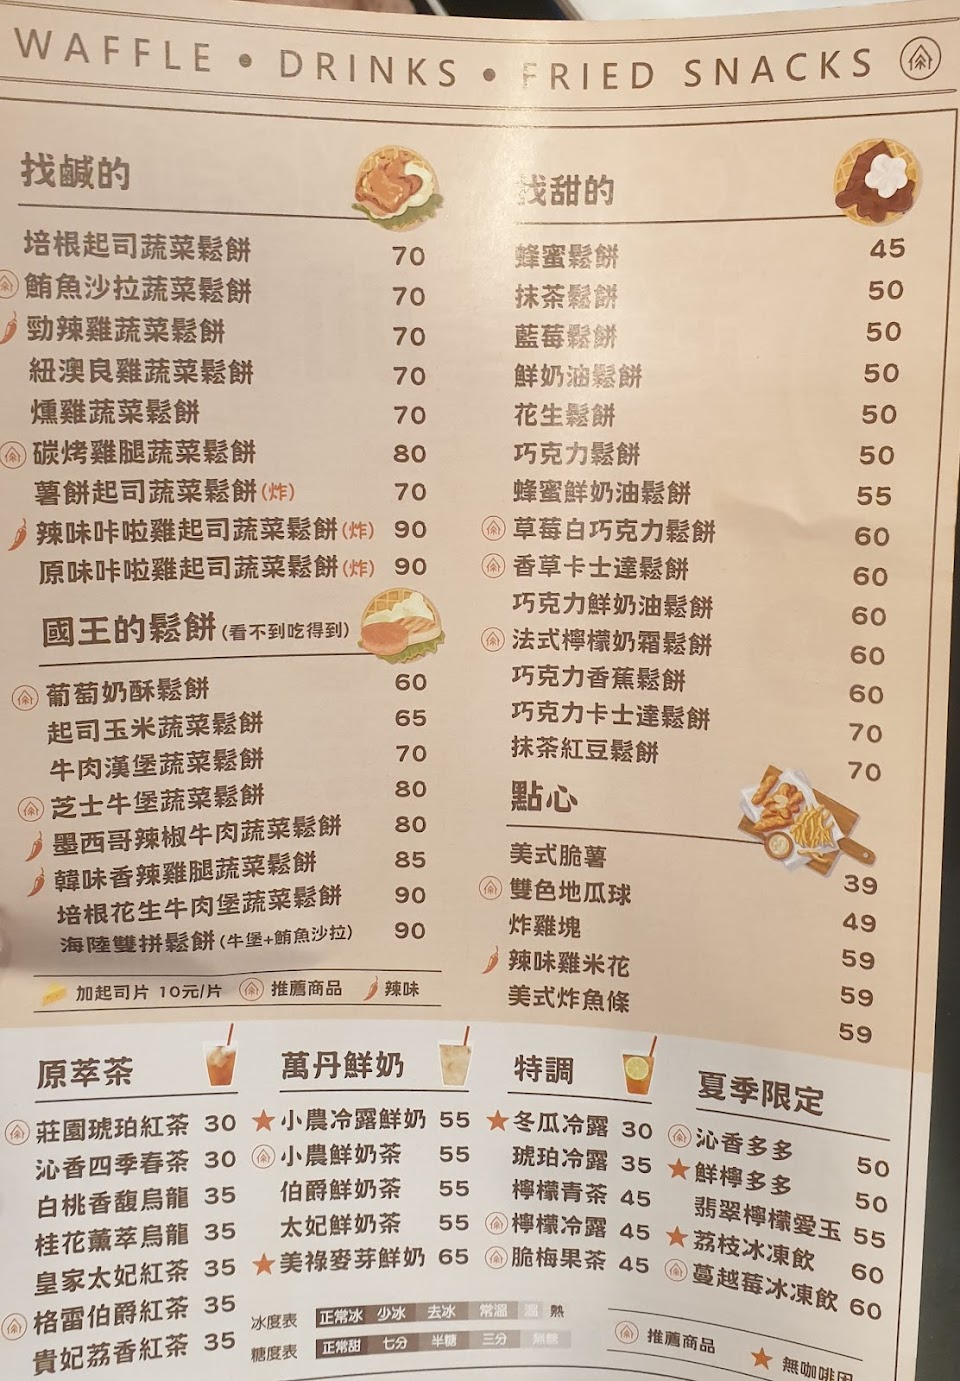 WAFFLE • DRINKS • FRIED SNACKS
找鹹的
培根起司蔬菜鬆餅 70
鮪魚沙拉蔬菜鬆餅 70
勁辣雞蔬菜鬆餅 70
紐澳良雞蔬菜鬆餅 70
燻雞蔬菜鬆餅 70
碳烤雞腿蔬菜鬆餅 80
薯餅起司蔬菜鬆餅(炸) 70
辣味咔啦雞起司蔬菜鬆餅(炸) 90
原味咔啦雞起司蔬菜鬆餅(炸) 90
國王的鬆餅(看不到吃得到)
葡萄奶酥鬆餅 60
起司玉米蔬菜鬆餅 65
牛肉漢堡蔬菜鬆餅 70
芝士牛堡蔬菜鬆餅 80
墨西哥辣椒牛肉蔬菜鬆餅 80
韓味香辣雞腿蔬菜鬆餅 85
培根花生牛肉堡蔬菜鬆餅 90
海陸雙拼鬆餅(牛堡+鮪魚沙拉) 90
加起司片 10元/片 推薦商品 辣味
找甜的
蜂蜜鬆餅 45
抹茶鬆餅 50
藍莓鬆餅 50
鮮奶油鬆餅 50
花生鬆餅 50
巧克力鬆餅 50
蜂蜜鮮奶油鬆餅 55
草莓白巧克力鬆餅 60
香草卡士達鬆餅 60
巧克力鮮奶油鬆餅 60
法式檸檬奶霜鬆餅 60
巧克力香蕉鬆餅 60
巧克力卡士達鬆餅 70
抹茶紅豆鬆餅 70
點心
美式脆薯 39
雙色地瓜球 49
炸雞塊 59
辣味雞米花 59
美式炸魚條 59
原萃茶
莊園琥珀紅茶 30
沁香四季春茶 30
白桃香馥烏龍 35
桂花薰萃烏龍 35
皇家太妃紅茶 35
格雷伯爵紅茶 35
貴妃荔香紅茶 35
萬丹鮮奶
小農冷露鮮奶 55
小農鮮奶茶 55
伯爵鮮奶茶 55
太妃鮮奶茶 55
美祿麥芽鮮奶 65
特調
冬瓜冷露 30
琥珀冷露 35
檸檬青茶 45
檸檬冷露 45
脆梅果茶 45
夏季限定
沁香多多 50
鮮檸多多 50
翡翠檸檬愛玉 55
荔枝冰凍飲 60
蔓越莓冰凍飲 60
冰度表 正常冰 少冰 去冰 常溫 溫 熱
糖度表 正常甜 七分 半糖 三分 無糖
推薦商品
無咖啡因